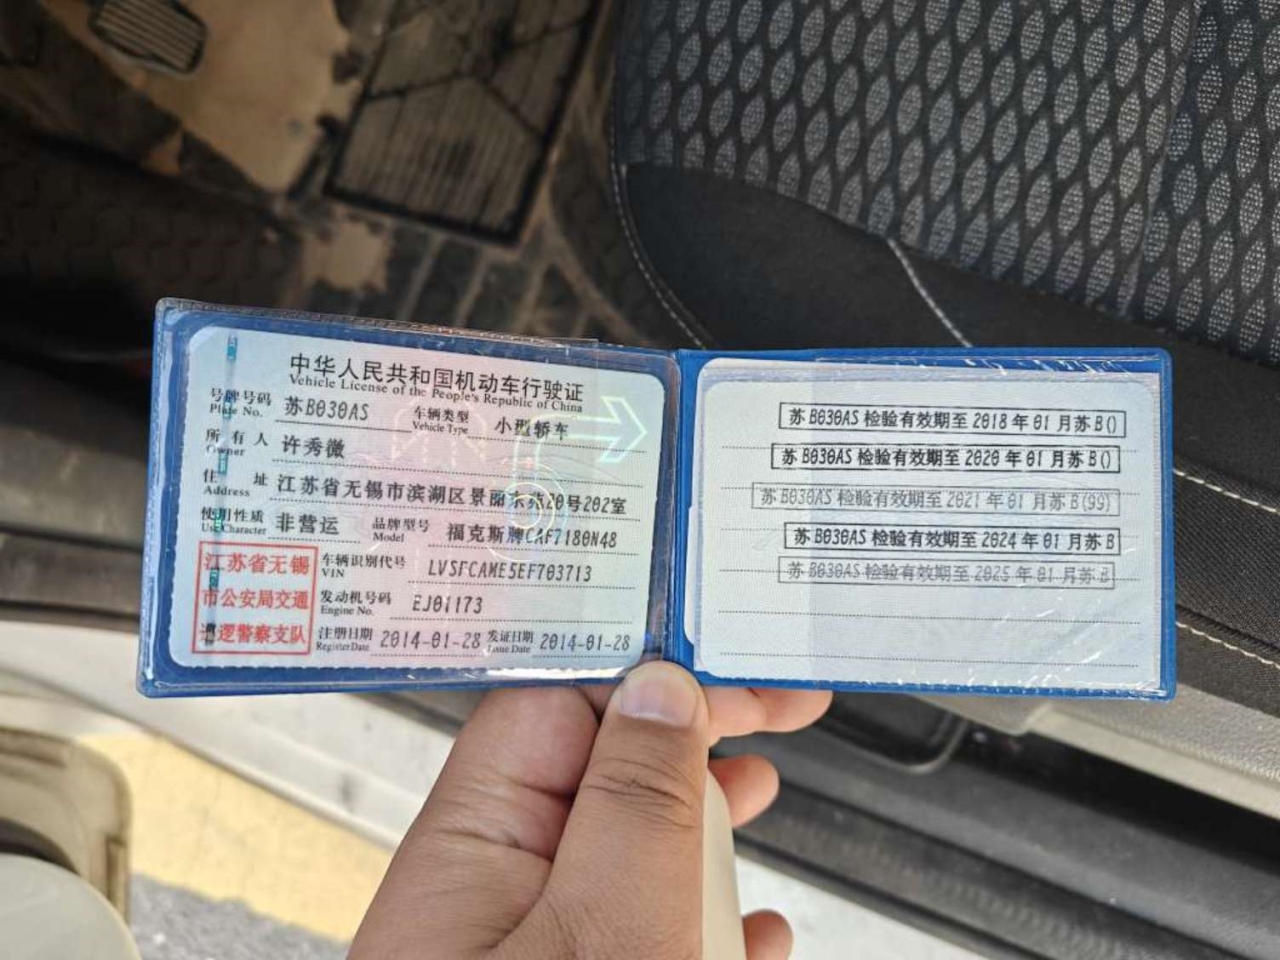 中华人民共和国机动车行驶证
Vehicle License of the People's Republic of China
号牌号码 苏B030AS 车辆类型 小型轿车
Plate No. Vehicle Type
所有人 许秀微
Owner
住址 江苏省无锡市滨湖区景丽东苑20号202室
Address
使用性质 非营运 品牌型号 福克斯牌CAF7180N48
Use Character Model
江苏省无锡
市公安局交通
巡逻警察支队
车辆识别代号 LVSFCAME5EF703713
VIN
发动机号码 EJ01173
Engine No.
注册日期 2014-01-28 发证日期 2014-01-28
Register Date Issue Date
苏B030AS检验有效期至2018年01月苏B()
苏B030AS检验有效期至2020年01月苏B()
苏B030AS检验有效期至2021年01月苏B(99)
苏B030AS检验有效期至2024年01月苏B
苏B030AS检验有效期至2025年01月苏B